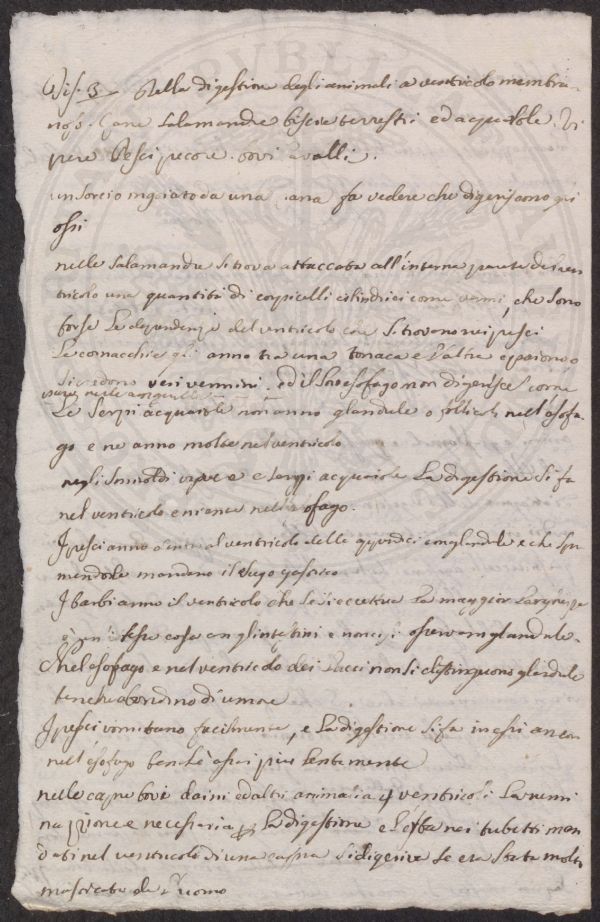 Dis. 3 – Della digestione degli animali a ventricolo membra-
noso. Rane Salamandre biscie terrestri ed acquaiole. Vi
pere Pesci pecore. bovi cavalli.
un Sorcio ingoiato da una rana fa vedere che digeriscono gli
ossi
nelle Salamandre si trova attaccata all'interna parete del ven
tricolo una quantità di corpicelli cilindrici come vermi, che sono
forse le dependenze del ventricolo che si trovono nei pesci
Le cornacchie gli anno tra una tonaca e l'altra e paiono o
si vedono veri vermini. ed il Suo esofago non digerisce come
nelle
Le Serpi acquaiole non anno glandule o follicoli nell'esofa-
go e ne anno molte nel ventricolo
negli vipere e serpi acquaiole La digestione si fa
nel ventricolo e niente nell'esofago.
I pesci anno al ventricolo delle glandule e che spre
mendole mandano il Sugo gastrico
I barbi anno il ventricolo che se si eccettua la maggior larghezza
è un' istessa cosa con gl'intestini e non ci si osservan glandule.
Nel esofago e nel ventricolo dei Lucci non si distinguono glandule
benche abondino di umore
I pesci vomitano facilmente, e La digestione si fa in essi ancor
nell'esofago benchè assai più lentamente
nelle capre bovi daini ed altri animali a 4 ventricoli La rumi
nazzione e necessaria La digestione e l'erba nei tubetti man
dati nel ventricolo di una capra si digeriva se era stata molto
masticata da l'uomo